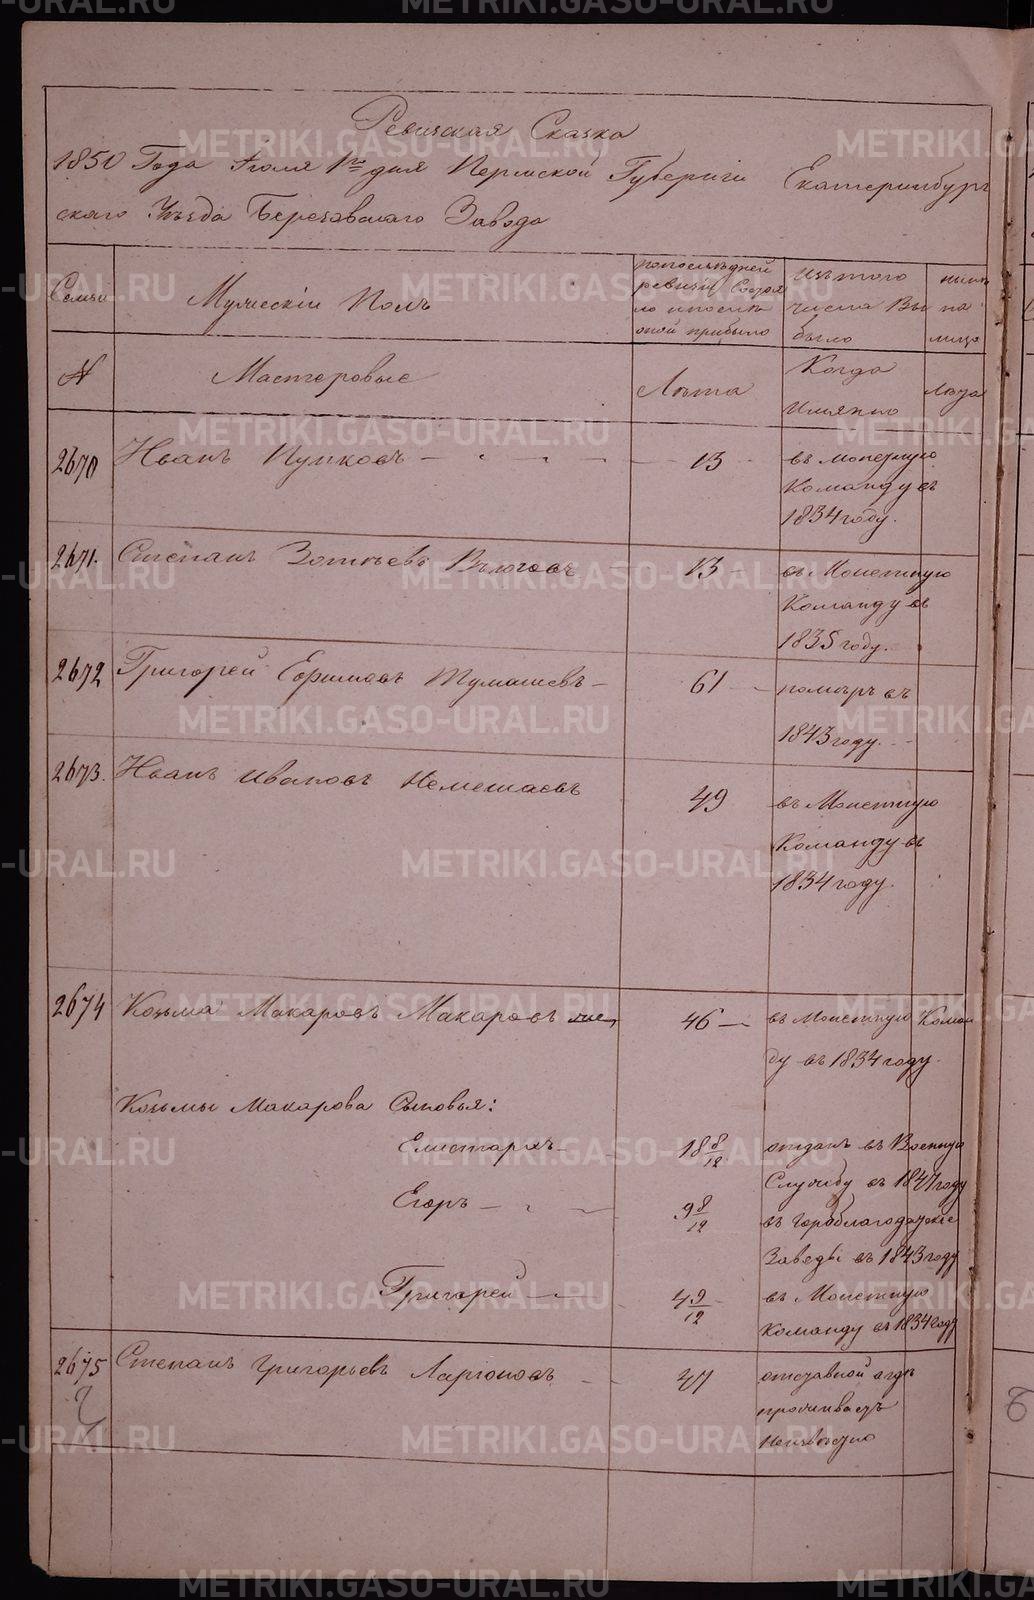 Ревизская Сказка
1850 Года Июля 1го дня Пермской Губернии Екатеринбург
скаго Уѣзда Березовскаго Завода
Семьи
Мужескiи Полъ
попослѣдней ревизiи Состоя
ло и послѣ оной прибыло
Изътого числа Вы было
нынѣ на лицо
№
Мастеровые
Лѣта
Когда Имянно
Лѣта
2670
Иванъ Пупковъ
13
въ Монетную Команду въ 1834 году.
2671.
Степанъ Зотѣевъ
13
въ Монетную Команду въ 1835 году.
2672
Григорей Ефимовъ Тумашевъ
61
помѣръ въ 1843 году.
2673.
Иванъ Ивановъ Немешаевъ
49
въ Монетную Команду въ 1834 году.
2674
Козьма Макаровъ Макаровъ же
46
въ Монетную Коман
ду въ 1834 году.
Козьмы Макарова Сыновья:
Елистархъ
18 8/12
отданъ въ Военную Службу въ 1847 году
Егоръ
9 8/12
въ Гороблагодатскiе Заводы въ 1843 году
Григорей
4 9/12
въ Монетную Команду въ 1834 году
2675
Степанъ Григорьевъ Ларiоновъ
47
отставной гдѣ проживаетъ Неизвѣстно
METRIKI.GASO-URAL.RU